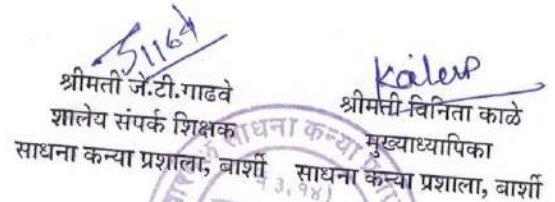 श्रीमती जे.टी.गाढवे
शालेय संपर्क शिक्षक
साधना कन्या प्रशाला, बार्शी
श्रीमती विनिता काळे
मुख्याध्यापिका
साधना कन्या प्रशाला, बार्शी
साधना कन्या